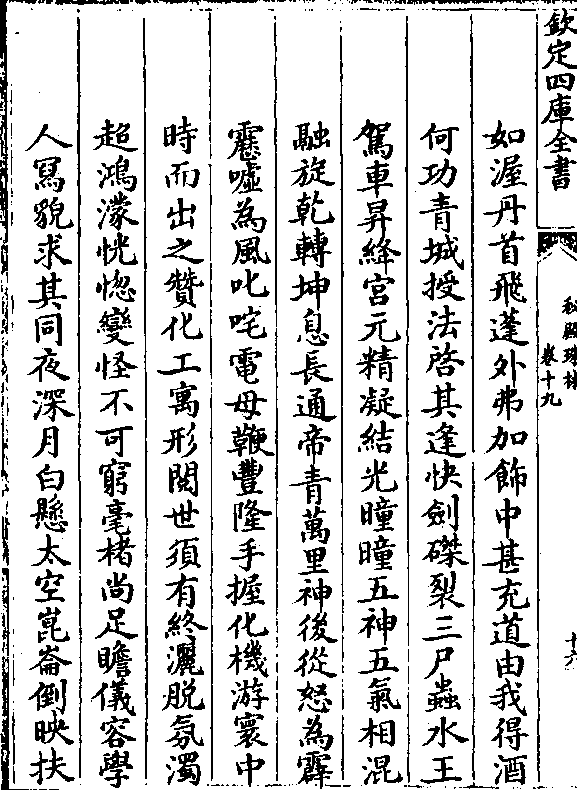 欽定四庫全書
秘殿珠林
卷十九
十六
如渥丹首飛蓬外弗加飾中甚充道由我得酒
何功青城授法啓其逢快劍磔裂三尸蟲水王
駕車昇絳宮元精凝結光曈曈五神五氣相混
融旋乾轉坤息長通帝青萬里神後從怒為霹
靂噓為風叱咤電母鞭豐隆手握化機游寰中
時而出之贊化工寓形閱世須有終灑脫氛濁
超鴻濛恍惚變怪不可窮毫楮尚足瞻儀容學
人冩貌求其同夜深月白懸太空崑崙倒映扶